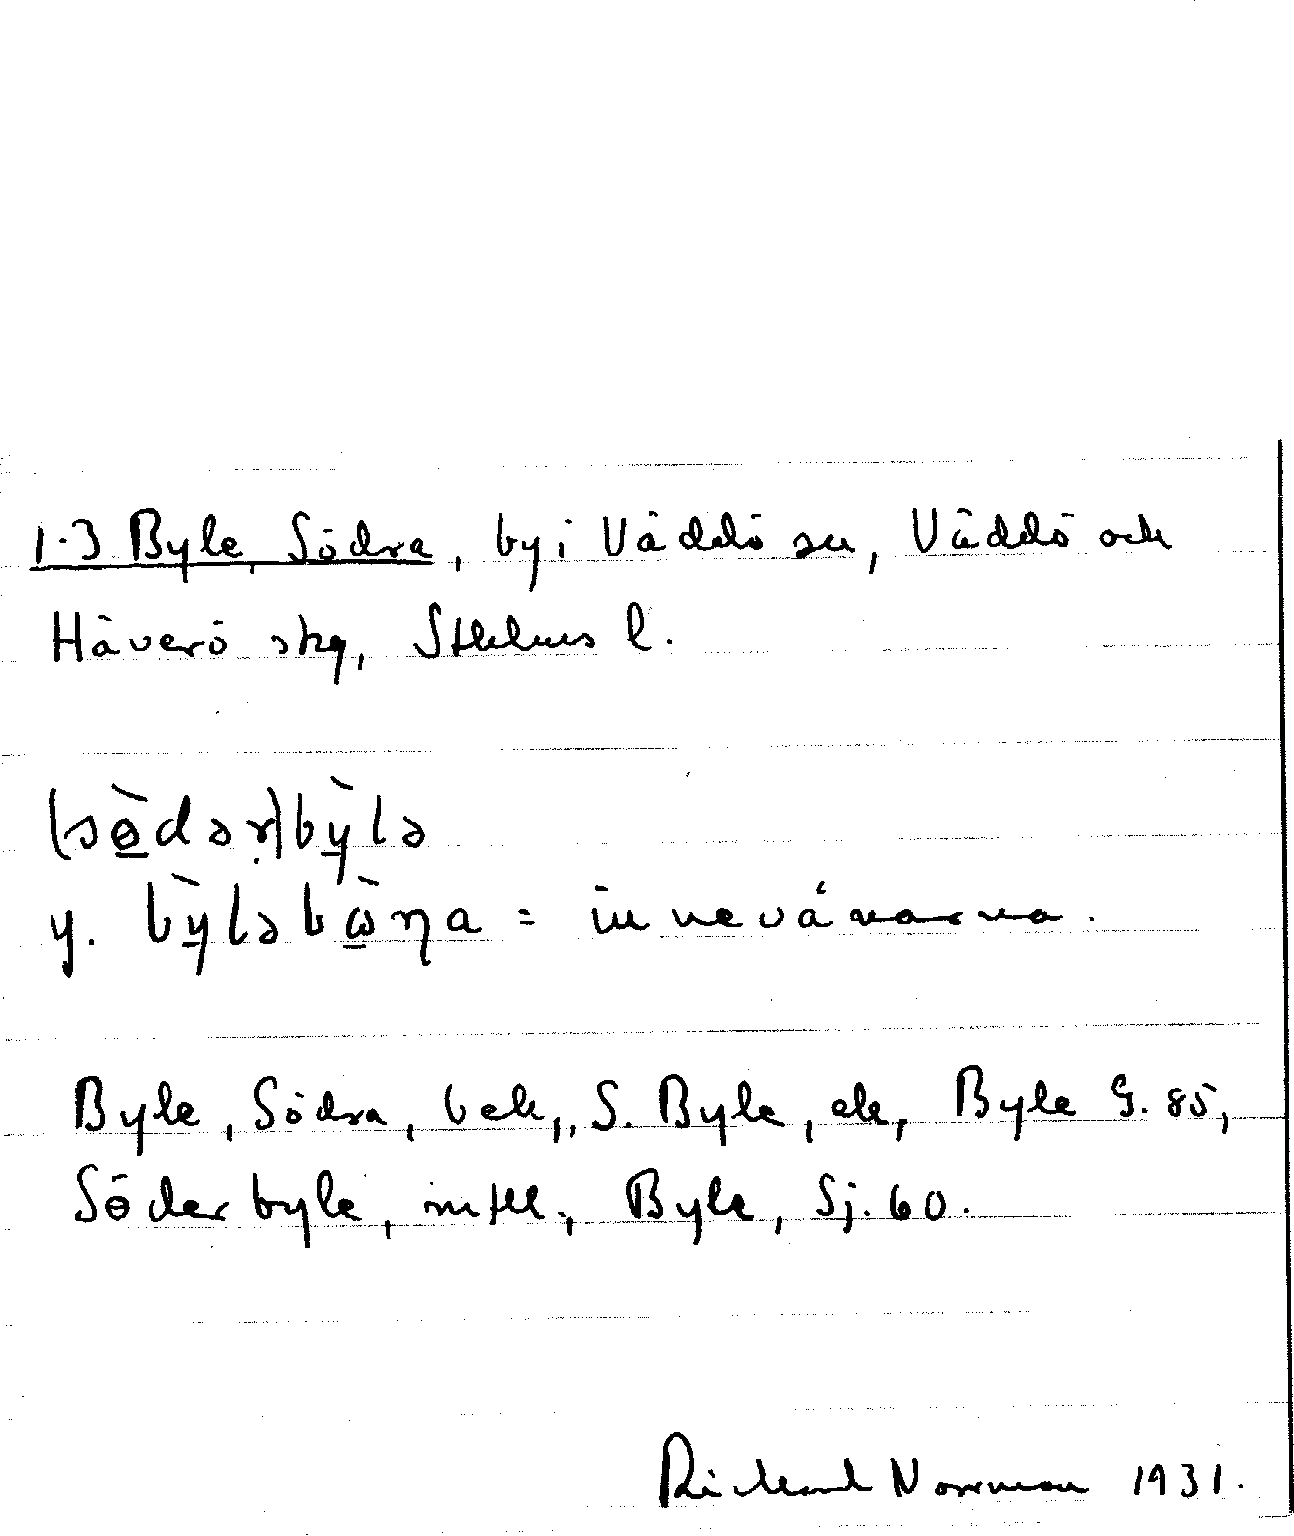 1-3 Byle, Södra, by i Väddö sn, Väddö och
Häverö skg, Sthlms l.
(sө̀dər)bỳ̠lə
y. bỳ̠ləbὼ̠ŋa = innevånarna.
Byle, Södra, bek, S. Byle, ek, Byle G. 85,
Söderbyle, mtll., Byle, Sj. 60.
Rickard Norrman 1931.